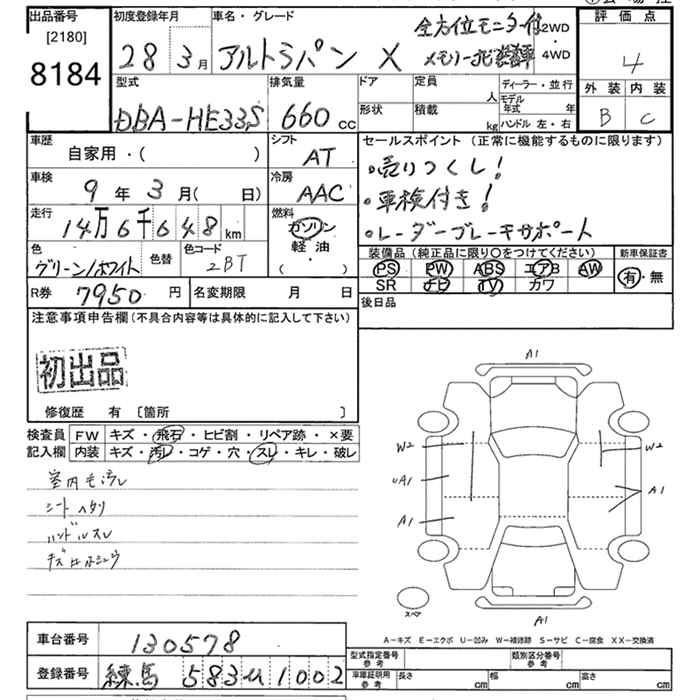 出品番号 初度登録年月 車名・グレード 評価点
[2180]
8184
28年3月 アルトラパン X
全方位モニター付 2WD
メモリーナビ装着車 4WD
4
型式 排気量 ドア 定員 人 ディーラー・並行 外装 内装
DBA-HE33S 660cc 形状 積載 kg モデル年式 年 ハンドル 左・右 B C
車歴 自家用・( ) シフト AT
セールスポイント(正常に機能するものに限ります)
・売りつくし!
車検 9年3月( 日) 冷房 AAC
・車検付き!
走行 14万6千648km 燃料 ガソリン 軽油・( )
・レーダーブレーキサポート
色 グリーン/ホワイト 色替 色コード 2BT
装備品(純正品に限り○をつけてください) 新車保証書
PS PW ABS エアB AW 有・無
SR ナビ TV カワ
R券 7950円 名変期限 月 日 後日品
注意事項申告欄(不具合内容等は具体的に記入して下さい)
初出品
修復歴 有 [箇所 ]
検査員 FW キズ・飛石・ヒビ割・リペア跡・×要
記入欄 内装 キズ・汚れ・コゲ・穴・スレ・キレ・破レ
室内も汚レ
シートヘタリ
ハンドルスレ
A1
W2 W2
UA1 A1
A1
スペア
A1
A-キズ E-エクボ U-凹み W-補修跡 S-サビ C-腐食 XX-交換済
車台番号 130578
登録番号 練馬 583 い 1002
型式指定番号 参考 類別区分番号 参考
車庫証明用 参考 長さ cm 幅 cm 高さ cm